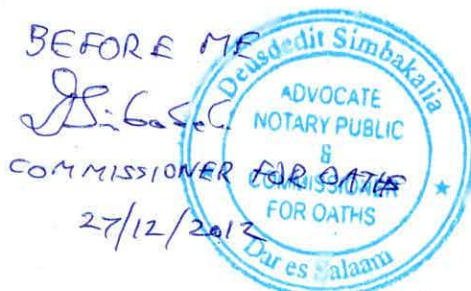 BEFORE ME
COMMISSIONER FOR OATHS
27/12/2012
Deusdedit Simbakalia
ADVOCATE
NOTARY PUBLIC
&
COMMISSIONER
FOR OATHS
★
Dar es Salaam